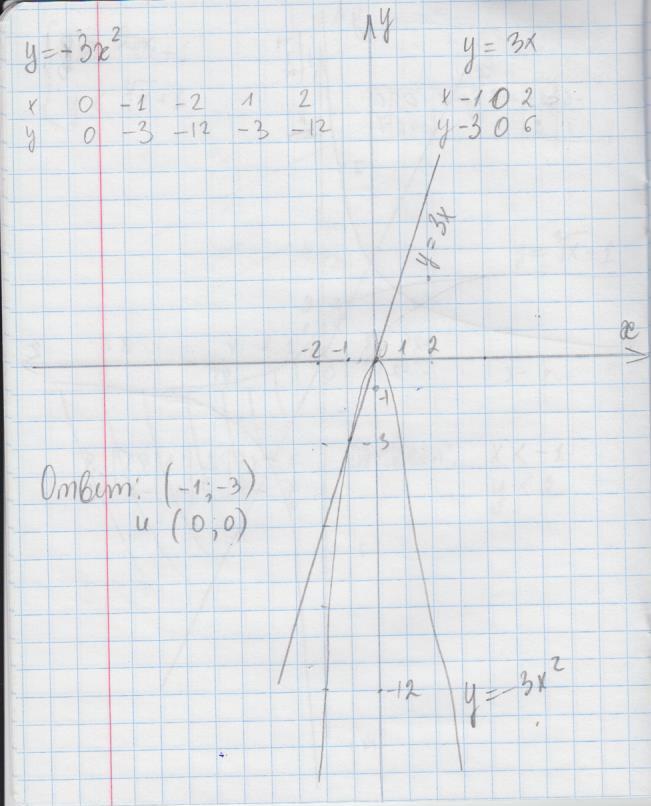 y
y = -3x²
y = 3x
x 0 -1 -2 1 2
y 0 -3 -12 -3 -12
x -1 0 2
y -3 0 6
y = 3x
x
-2 -1 0 1 2
-1
-3
Ответ: (-1; -3)
и (0; 0)
-12
y = -3x²